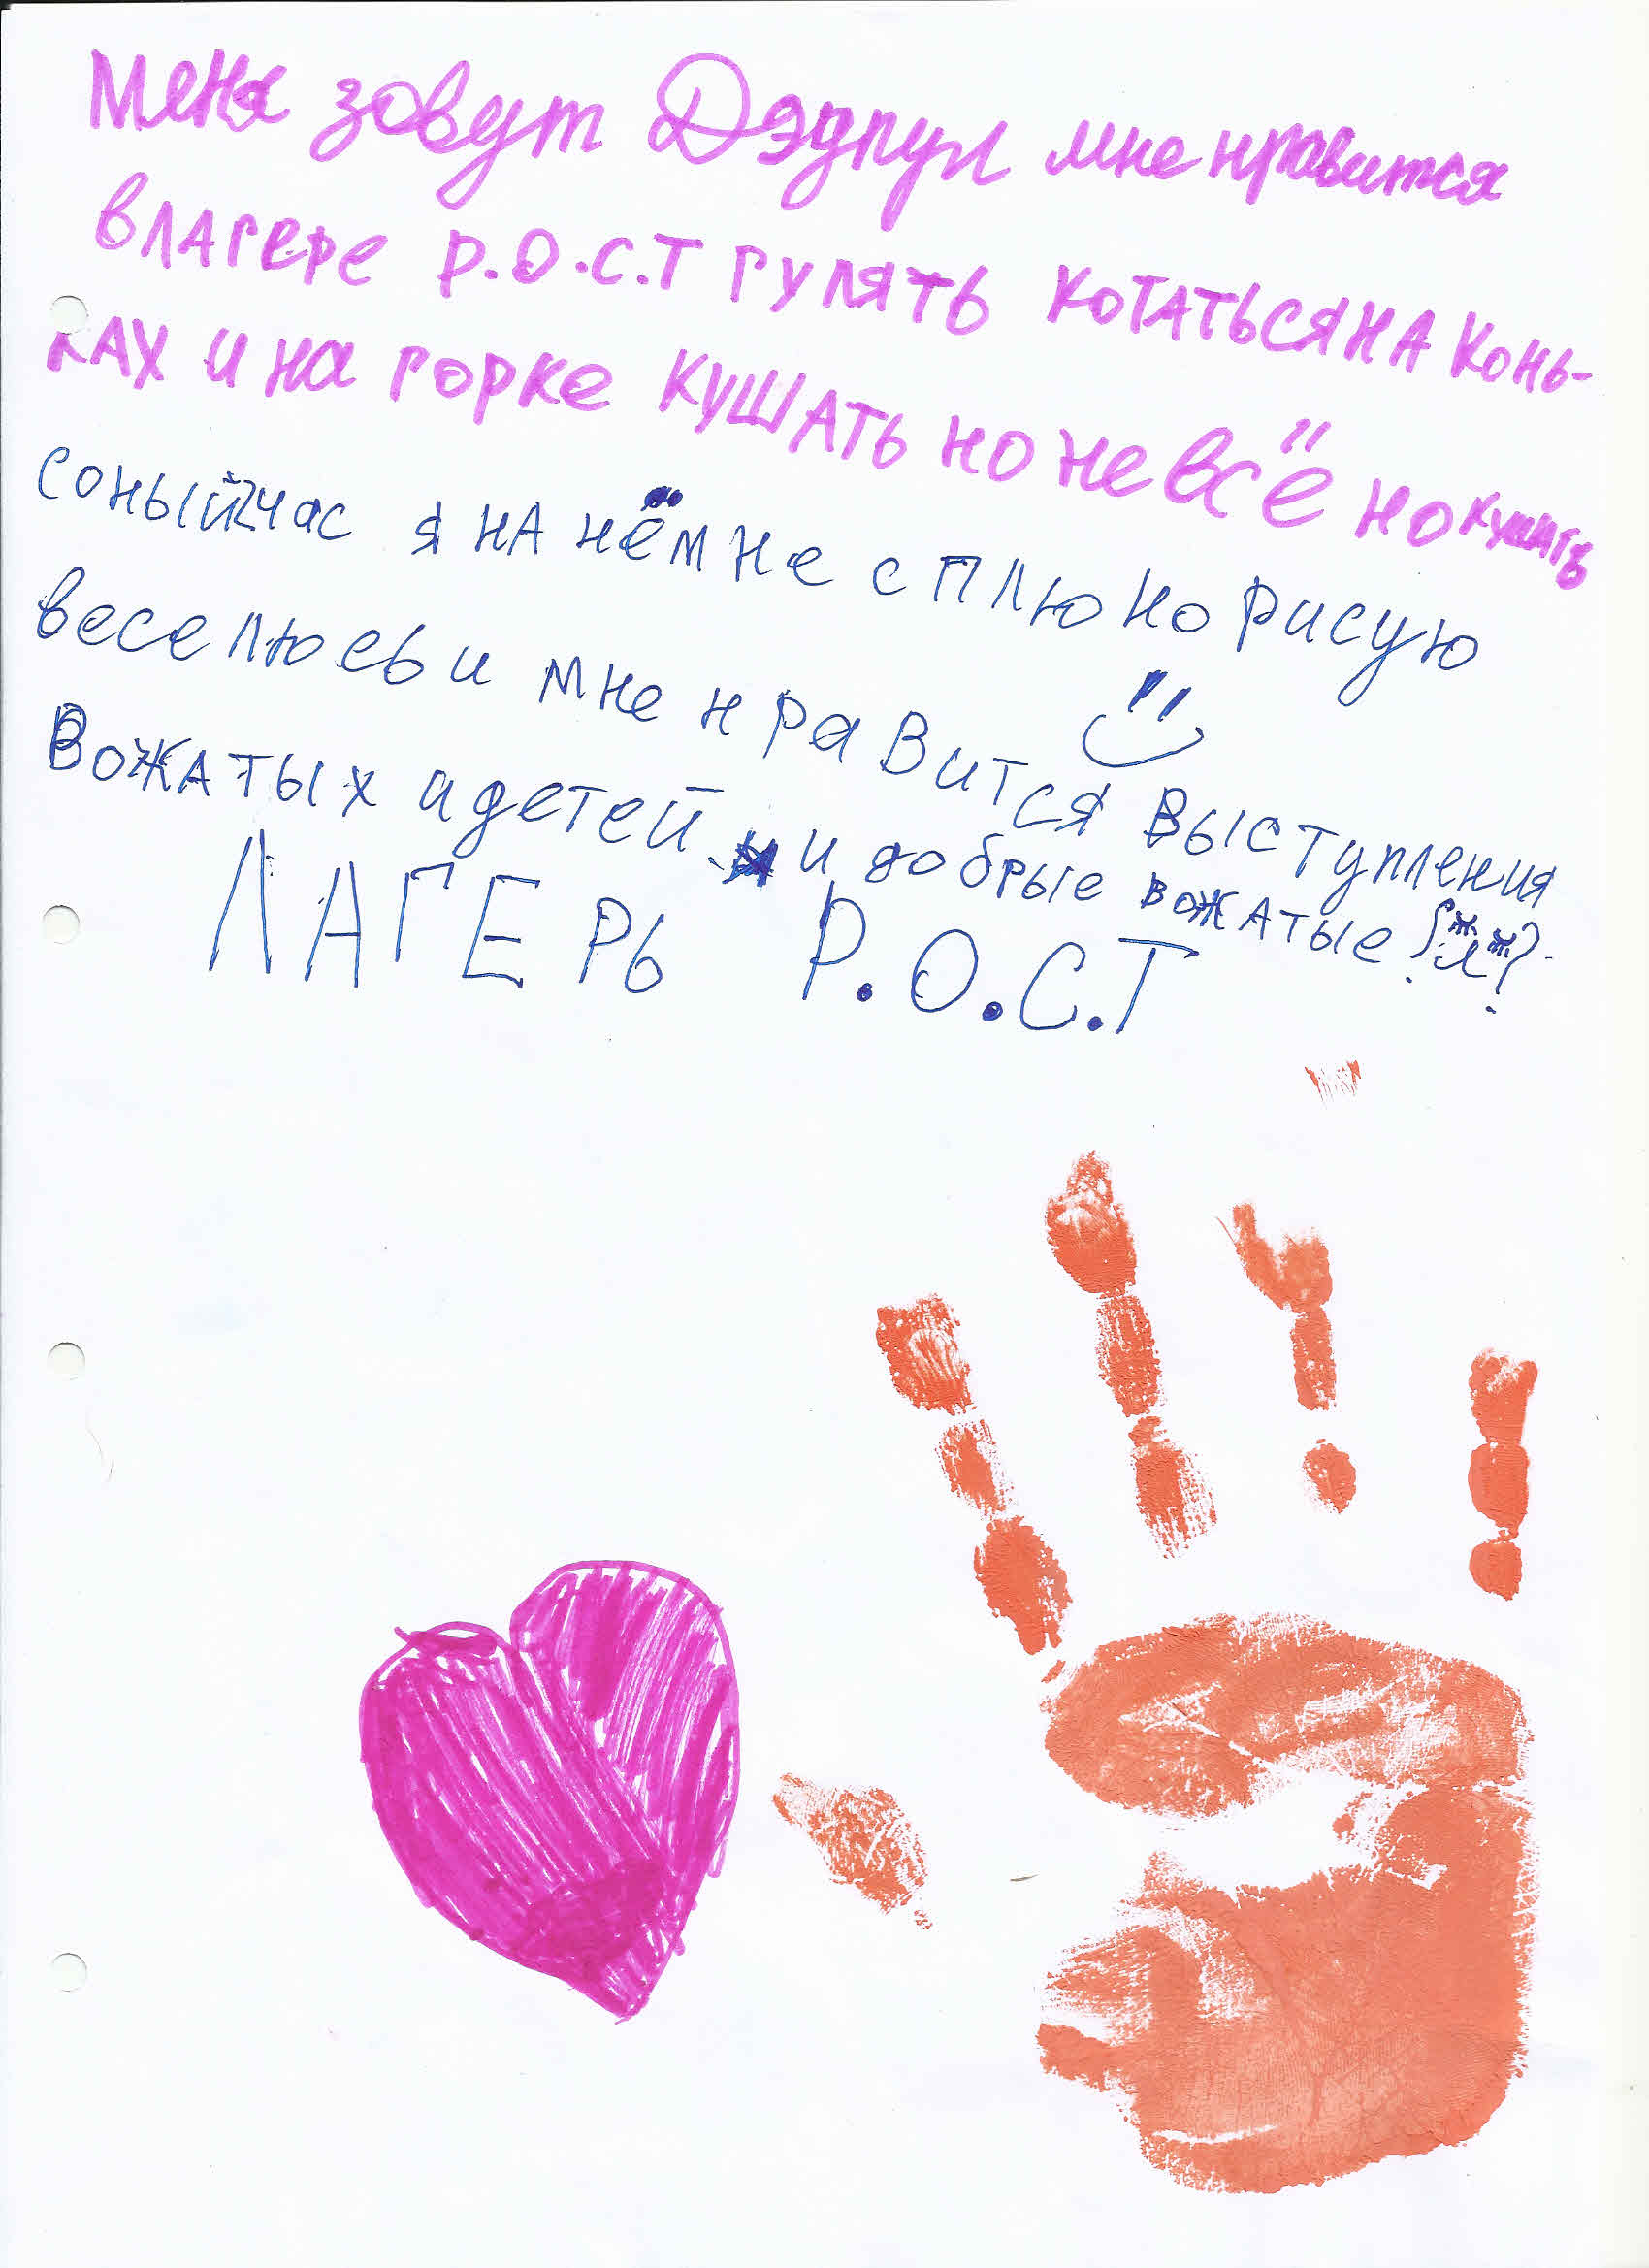 Меня зовут Дэдпул мне нравится
влагере Р.О.С.Т гулять котатьсяна конь-
ках и на горке кушать но не всё но кушать
соныйчас я на нём не сплю но рисую
веселюсь и мне нравится выступления
Вожатых идетей и добрые вожатые
ЛАГЕРЬ Р.О.С.Т